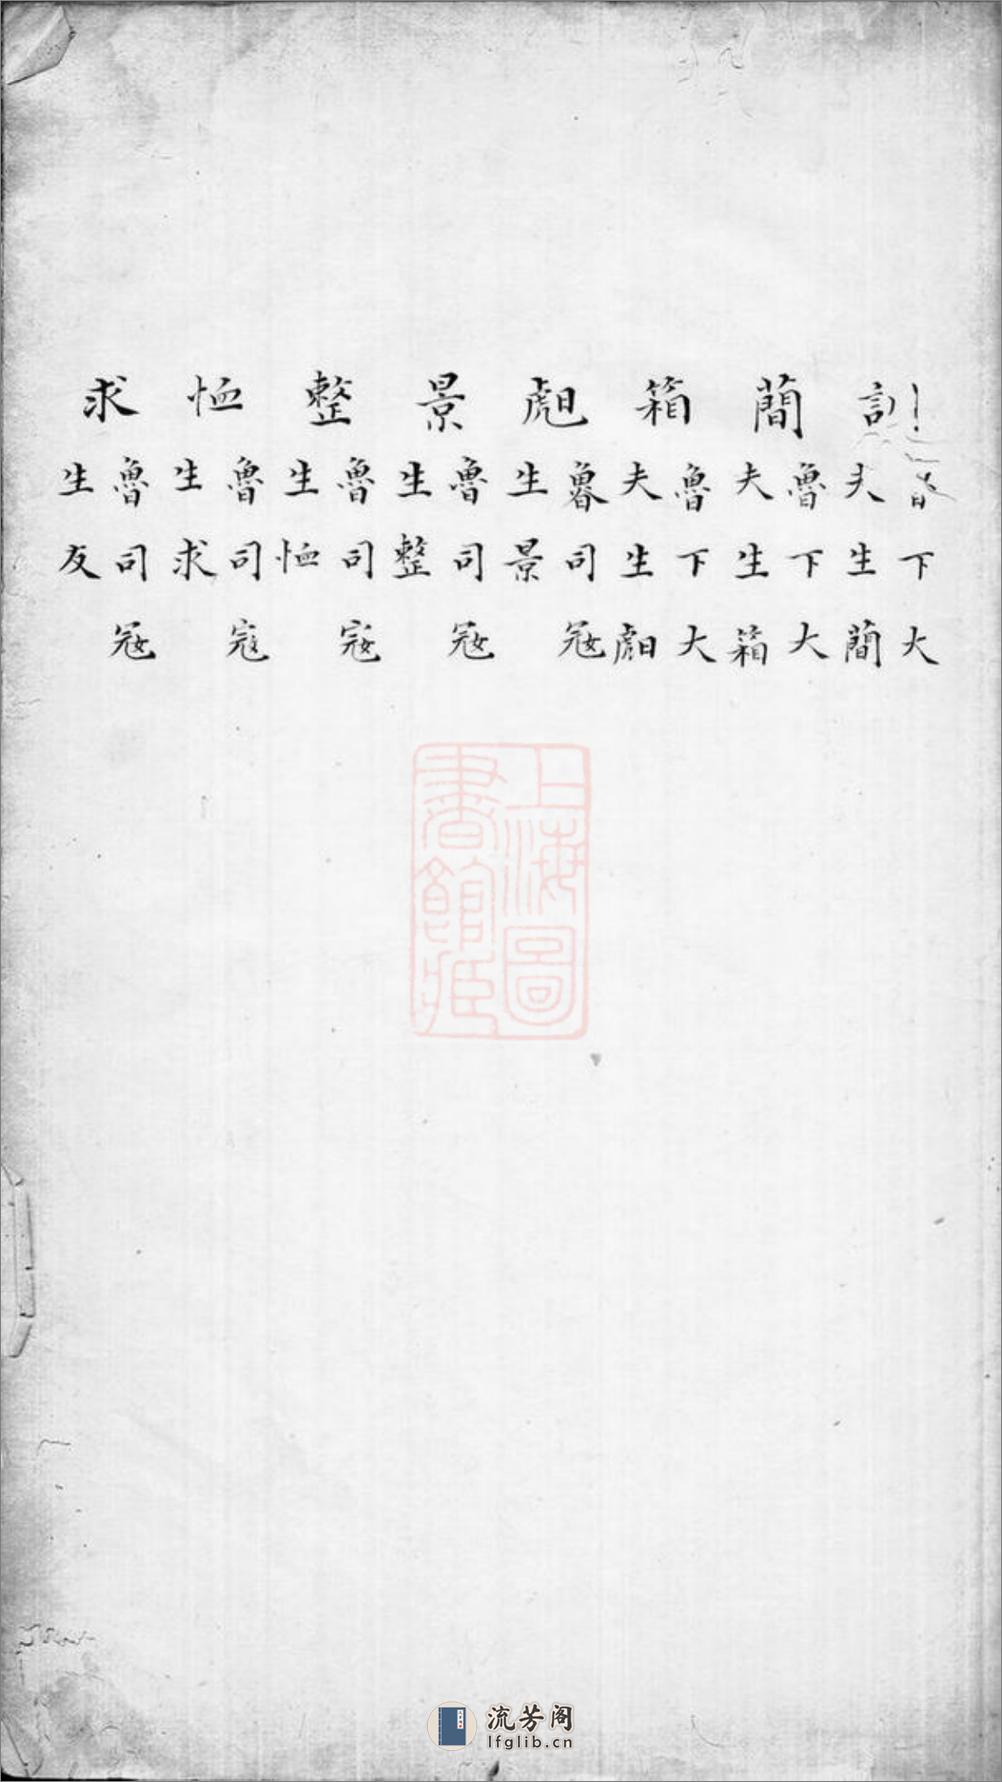 訓
魯下大
夫生蕳
蕳
魯下大
夫生箱
箱
魯下大
夫生
魯司寇
生景
景
魯司寇
生整
整
魯司寇
生恤
恤
魯司寇
生求
求
魯司寇
生友
上海圖
書館藏
流芳阁
lfglib.cn